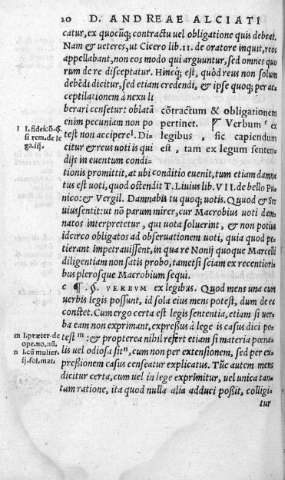 20 D. ANDREAE ALCIATI
catur, ex quocũq; contractu uel obligatione quis debeat.
Nam & ueteres, ut Cicero lib. 11. de oratore inquit, reos
appellabant, non eos modo qui arguuntur, sed omnes quo
rum de re disceptatur. Hincq; est, quòd reus non solum
debẽdi dicitur, sed etiam credendi, & ipse quoq; per ac-
ceptilationem à nexu li
berari censetur: oblatã cõtractum & obligationem
enim pecuniam non po pertinet. ¶ Verbum ex
l test non accipere l. Di- legibus, sic capiendum
citur & reus uoti is qui est, tam ex legum senten-
sese in euentum condi-
tionis promittit, at ubi conditio euenit, tum etiam damna
tus est uoti, quod ostendit T. Liuius lib. VII. de bello Pu-
nico: & Vergil. Damnabis tu quoq; uotis. Quod & Ser
uius sentit: ut nõ parum mirer, cur Macrobius uoti dem-
natos interpretetur, qui uota soluerint, & non potius
idcirco obligatos ad obseruationem uoti, quia quod pe-
tierant impetrauissent, in qua re Nonij quoque Marcelli
diligentiam non satis probo, tametsi sciam ex recentiori-
bus plerosque Macrobium sequi.
c ¶. §. VERBVM ex legibus. Quod mens una cum
uerbis legis possunt, id sola eius mens potest, dum de ea
constet. Cum ergo certa est legis sententia, etiam si uer-
ba eam non exprimant, expressus à lege is casus dici po-
m test m: & propterea nihil refert etiam si materia pœna-
lis uel odiosa sit n, cum non per extensionem, sed per ex-
pressionem casus censeatur explicatus. Tũc autem mens
dicitur certa, cum uel in lege exprimitur, uel unica tan-
tum ratione, ita quod nulla alia adduci possit, colligi-
tur